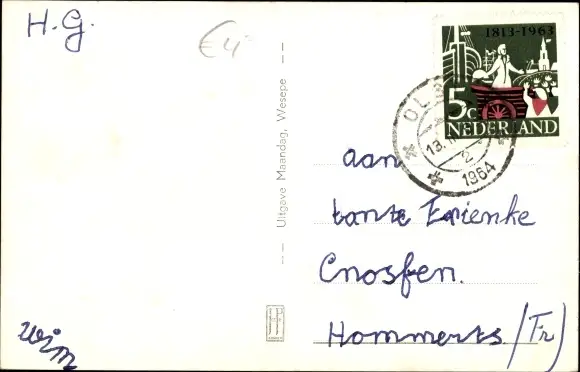 H.G.
€4
1813-1963
5c
NEDERLAND
OL
13.
2
1964
Uitgave Maandag, Wesepe
aan
tante Frienke
Cnossen.
Hommerts (Fr)
wim